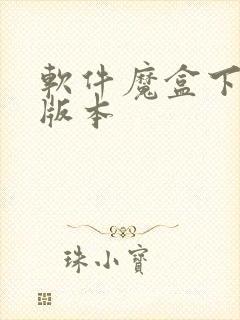 軟件魔盒下
版本
珠小寶